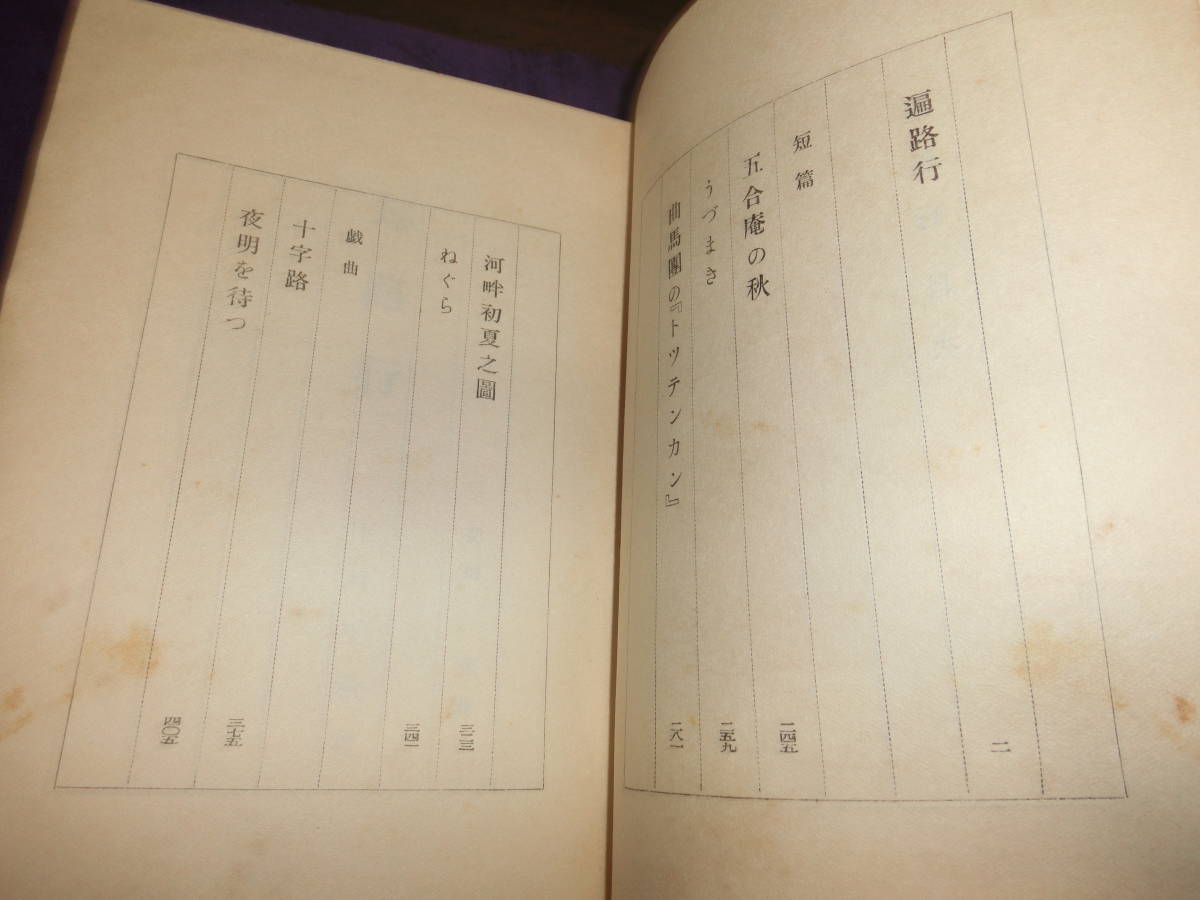 遍路行 二
短篇
五合庵の秋 二四五
うづまき 二五九
曲馬團の『トツテンカン』 二八一
河畔初夏之圖 三二三
ねぐら 三四一
戯曲
十字路 三七五
夜明を待つ 四〇五